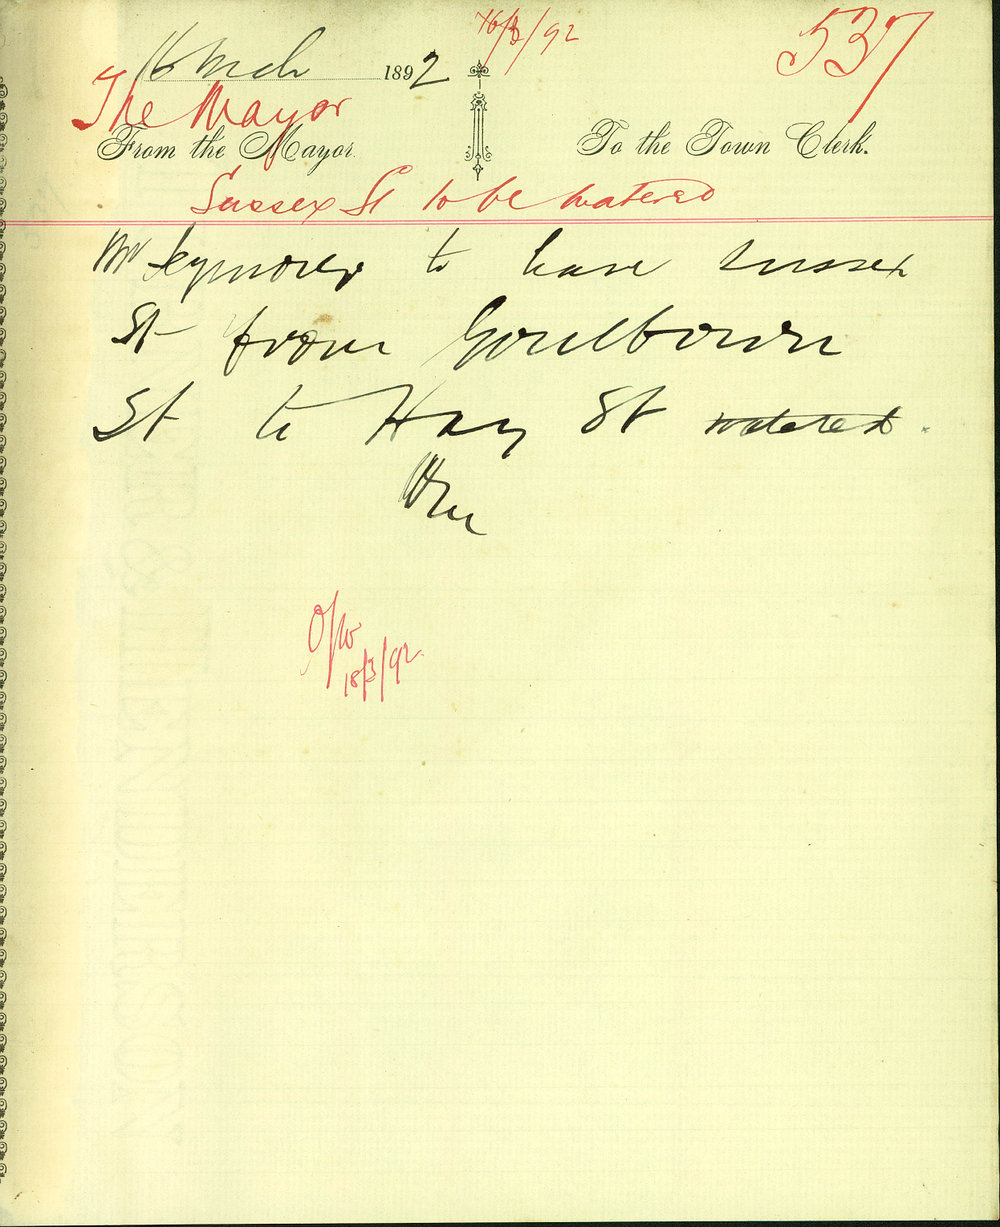 16/3/92
537
16 Mch 1892
The Mayor
From the Mayor.
To the Town Clerk.
Sussex St to be watered
Mr Seymour to have Sussex
St from Goulbourn
St to Hay St watered.
18/3/92.